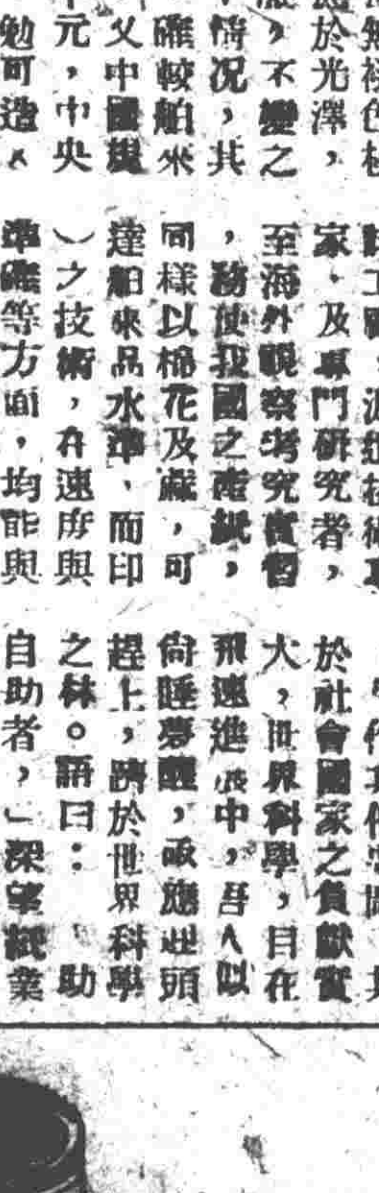 無
於光澤，
，不變之
情况，其
確較舶來
父中國
元，中央
勉可造
家，及專門研究者，
至海外觀察考究實習
，務使我國之產紙，
同樣以棉花及蔴，可
達舶來品水準、而印
）之技術，在速度與
準確等方面，均能與
於社會國家之貢獻實
大，世界科學，目在
飛速進展中，吾人似
尙睡夢醒，亟應迎頭
趕上，躋於世界科學
之林。語曰：　助
自助者，」深望紙業